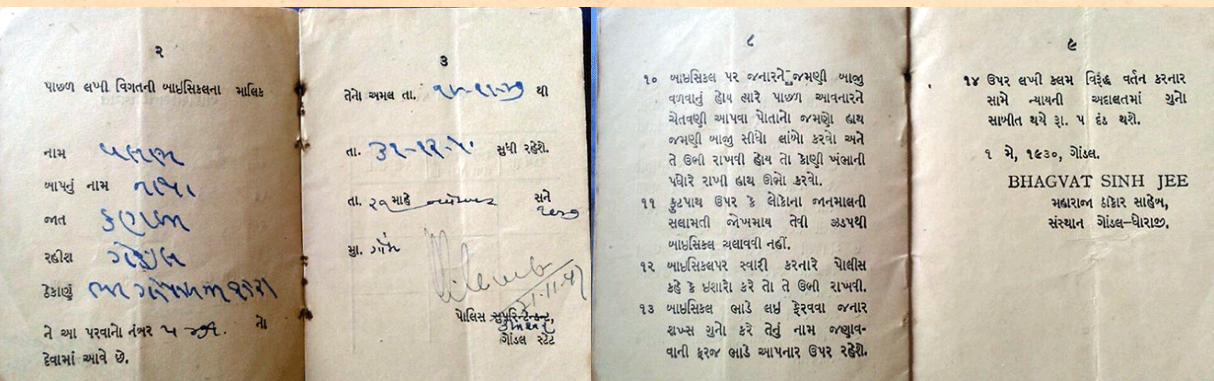 ૨
પાછળ લખી વિગતની બાઇસિકલના માલિક
નામ
બાપનું નામ
જાત
રહીશ ગોંડલ
ઠેકાણું
ને આ પરવાનો નંબર ૫ નો
દેવામાં આવે છે.
૩
તેનો અમલ તા. થી
તા. ૩૧-૧૨-૫૦ સુધી રહેશે.
તા. ૨૧ માહે નવેમ્બર સને
મુ. ગોંડલ
21.11.47
પોલિસ સુપ્રિન્ટેન્ડન્ટ,
ગોંડલ સ્ટેટ
૮
૧૦ બાઇસિકલ પર જનારને જમણી બાજી
વળવાનું હોય ત્યારે પાછળ આવનારને
ચેતવણી આપવા પોતાનો જમણો હાથ
જમણી બાજી સીધો લાંબો કરવો અને
તે ઉભી રાખવી હોય તો કોણી ખંભાની
પધોરે રાખી હાથ ઊભો કરવો.
૧૧ ફુટપાથ ઉપર કે લોકોના જાનમાલની
સલામતી જોખમાય તેવી ઝડપથી
બાઇસિકલ ચલાવવી નહીં.
૧૨ બાઇસિકલપર સ્વારી કરનારે પોલીસ
કહે કે ઇશારો કરે તો તે ઉભી રાખવી.
૧૩ બાઇસિકલ ભાડે લઇ ફેરવવા જનાર
શખ્સ ગુનો કરે તેનું નામ જણાવ-
વાની ફરજ ભાડે આપનાર ઉપર રહેશે.
૯
૧૪ ઉપર લખી કલમ વિરૂદ્ધ વર્તન કરનાર
સામે ન્યાયની અદાલતમાં ગુનો
સાબીત થયે રૂા. ૫ દંડ થશે.
૧ મે, ૧૯૩૦, ગોંડલ.
BHAGVAT SINH JEE
મહારાજા ઠાકોર સાહેબ,
સંસ્થાન ગોંડલ-ધોરાજી.